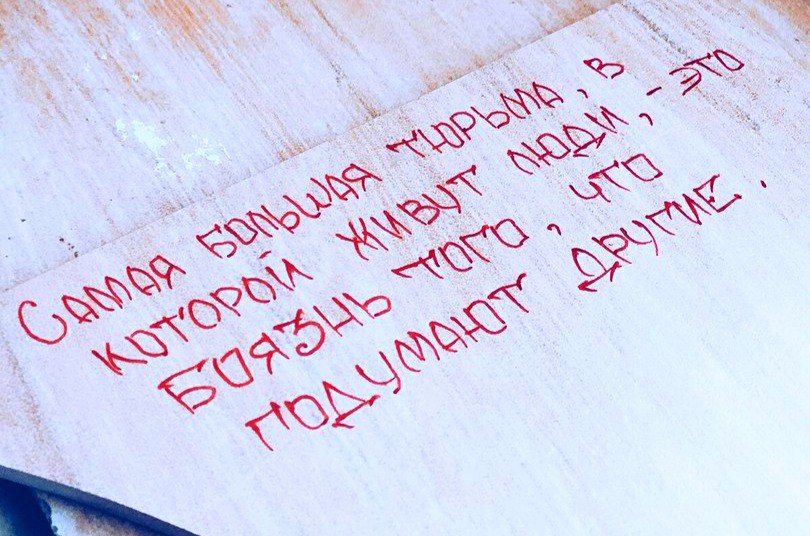 Самая большая тюрьма, в
которой живут люди, - это
боязнь того, что
подумают другие.